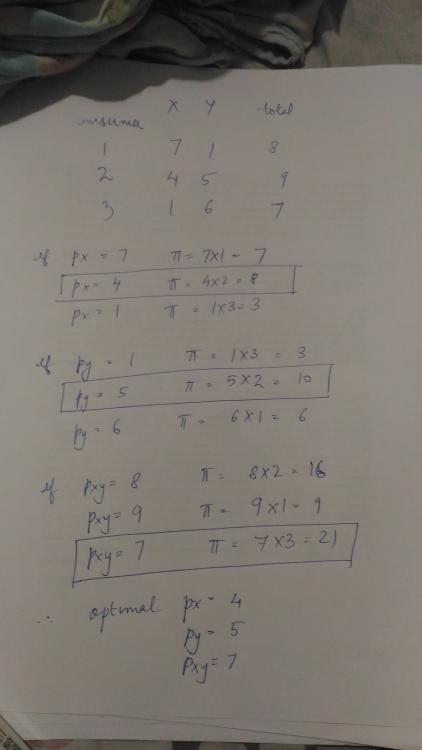 X Y total
consumer
1 7 1 8
2 4 5 9
3 1 6 7
if px = 7 π = 7x1 = 7
px = 4 π = 4x2 = 8
px = 1 π = 1x3 = 3
if py = 1 π = 1x3 = 3
py = 5 π = 5x2 = 10
py = 6 π = 6x1 = 6
if pxy = 8 π = 8x2 = 16
pxy = 9 π = 9x1 = 9
pxy = 7 π = 7x3 = 21
∴ optimal px = 4
py = 5
pxy = 7